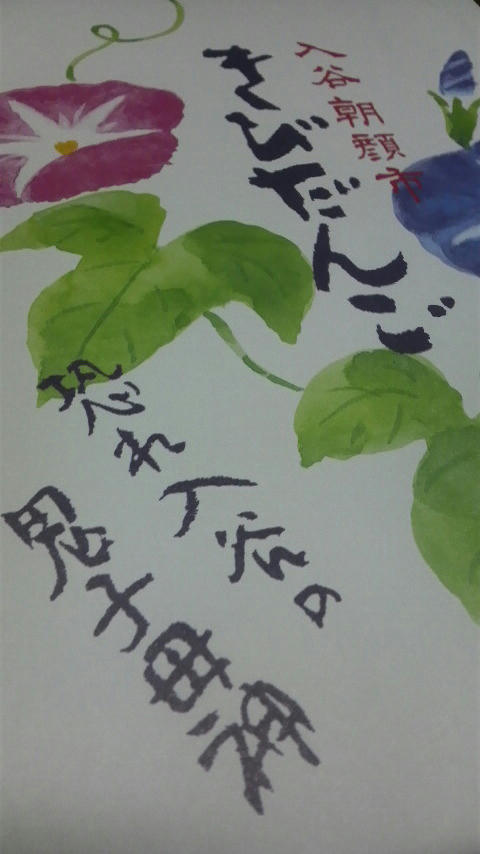 入谷朝顔市
きびだんご
恐れ入谷の
鬼子母神